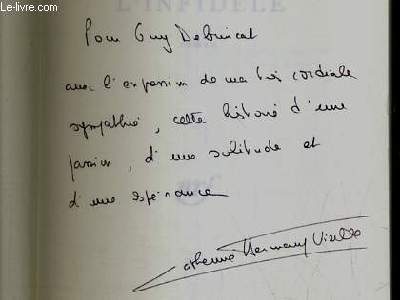 Le-livre.com
L'INFIDÈLE
Pour Guy
avec l'expression de ma très cordiale
sympathie, cette histoire d'une
passion, d'une solitude et
d'une espérance
Catherine Hermary Vieille